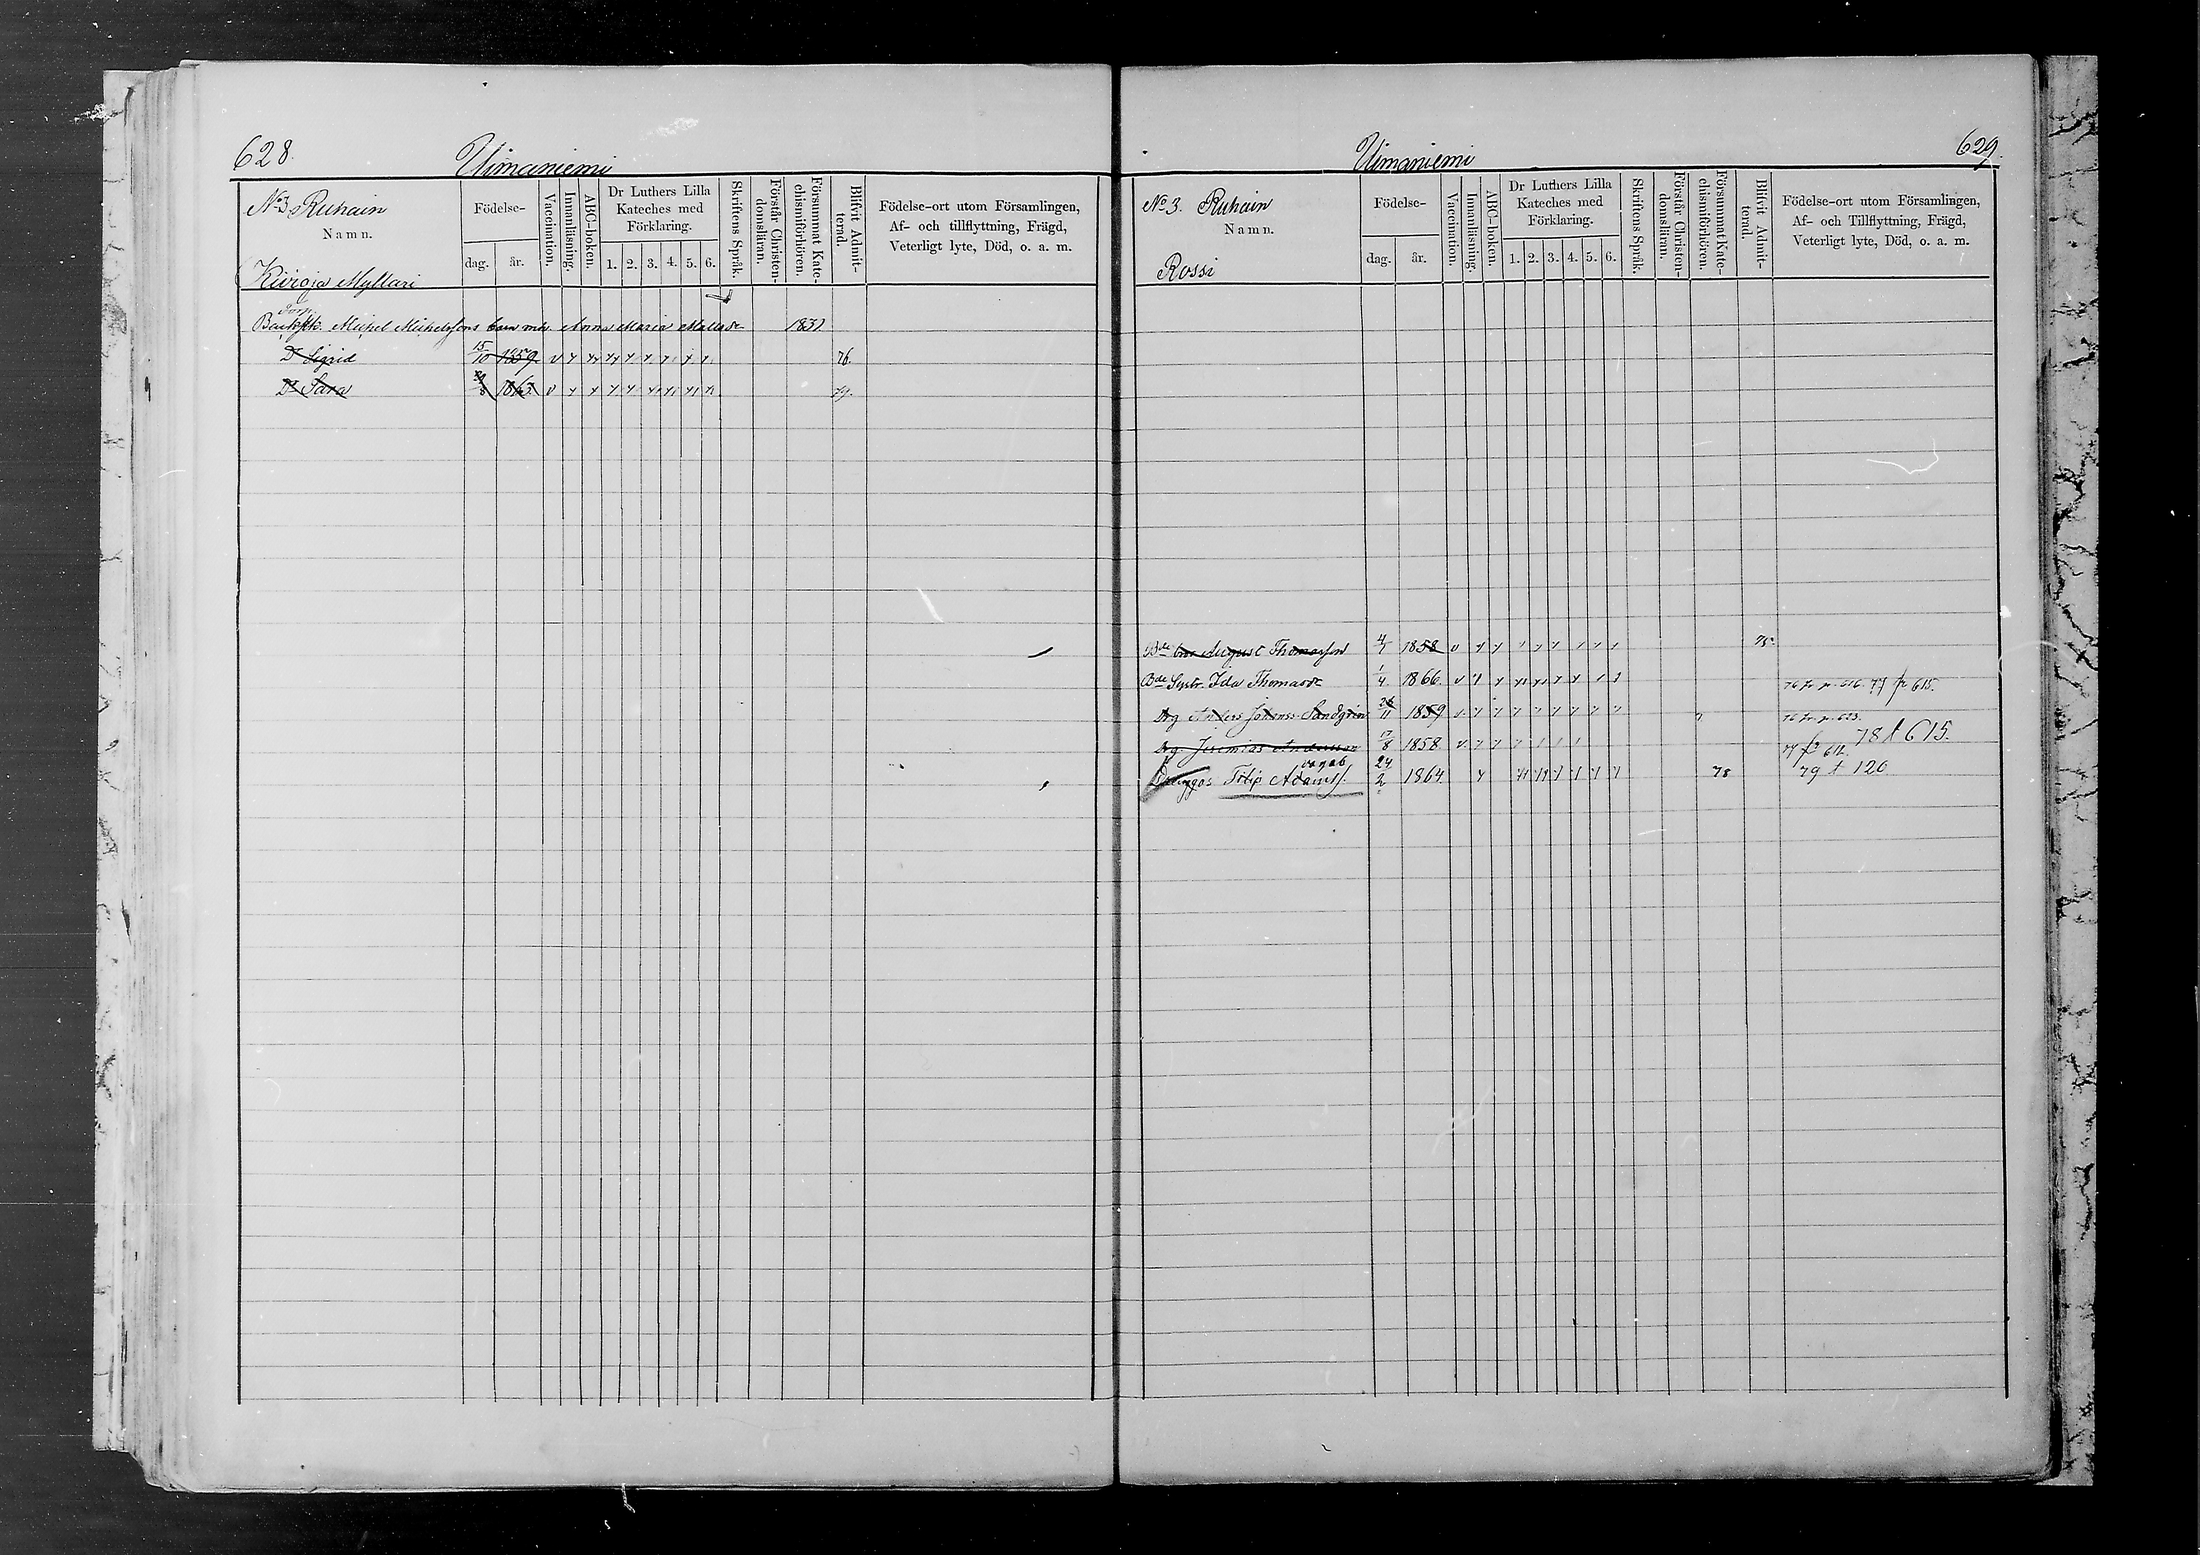 628.
Uimaniemi
No 3 Ruhain
Namn.
Kivioja Myllari
Födelse-
dag.
år.
Vaccination.
Innanläsning.
ABC-boken.
Dr Luthers Lilla
Kateches med
Förklaring.
1. 2. 3. 4. 5. 6.
Skriftens Språk.
Förstår Christen-
domsläran.
Försummat Kate-
chismiförhören.
Blifvit Admit-
terad.
Födelse-ort utom Församlingen,
Af- och tillflyttning, Frägd,
Veterligt lyte, Död, o. a. m.
Michel Michelssons barn med Anna Maria 1831
Dr Sigrid 15/10 1859 v 76.
Dr Sara 1863. v 79.
Uimaniemi
629.
No 3. Ruhain
Namn.
Rossi
Födelse-
dag.
år.
Vaccination.
Innanläsning.
ABC-boken.
Dr Luthers Lilla
Kateches med
Förklaring.
1. 2. 3. 4. 5. 6.
Skriftens Språk.
Förstår Christen-
domsläran.
Försummat Kate-
chismiförhören.
Blifvit Admit-
terad.
Födelse-ort utom Församlingen,
Af- och Tillflyttning, Frägd,
Veterligt lyte, Död, o. a. m.
Bde bror August Thomasson 4/1 1858 v 75.
Bde Systr. Ida Thomasdr 1/4 1866. v 76 fr p. 616. 77 fr 615.
Drg Anders Johanss. Sandgren 26/11 1859 v 76 fr p. 623.
Drg. Jeremias Andersson 17/8 1858 v. 77 fr 612. 78 t 615.
Drenggos Filip Adamss. 24/2 1864. 78 79 t 120